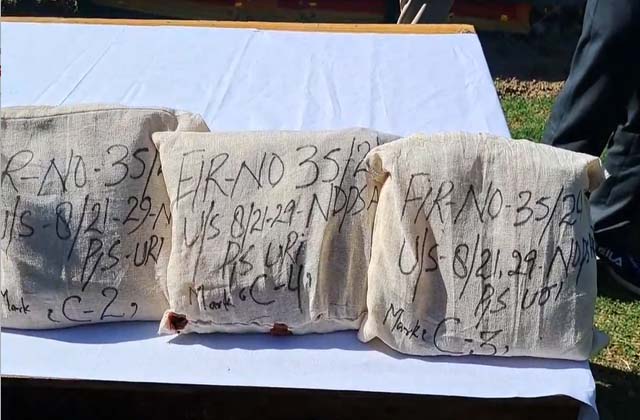 R-NO-35/2
U/S-8/21-29-N
P/S-URI
Mark "C-2,
FIR-NO 35/2
U/S 8/21-29-NDPSA
P/S URI
Mark "C-4,
FIR-NO-35/24
U/S-8/21,29-NDPS
P/S URI
Mark "C-3,
FILA